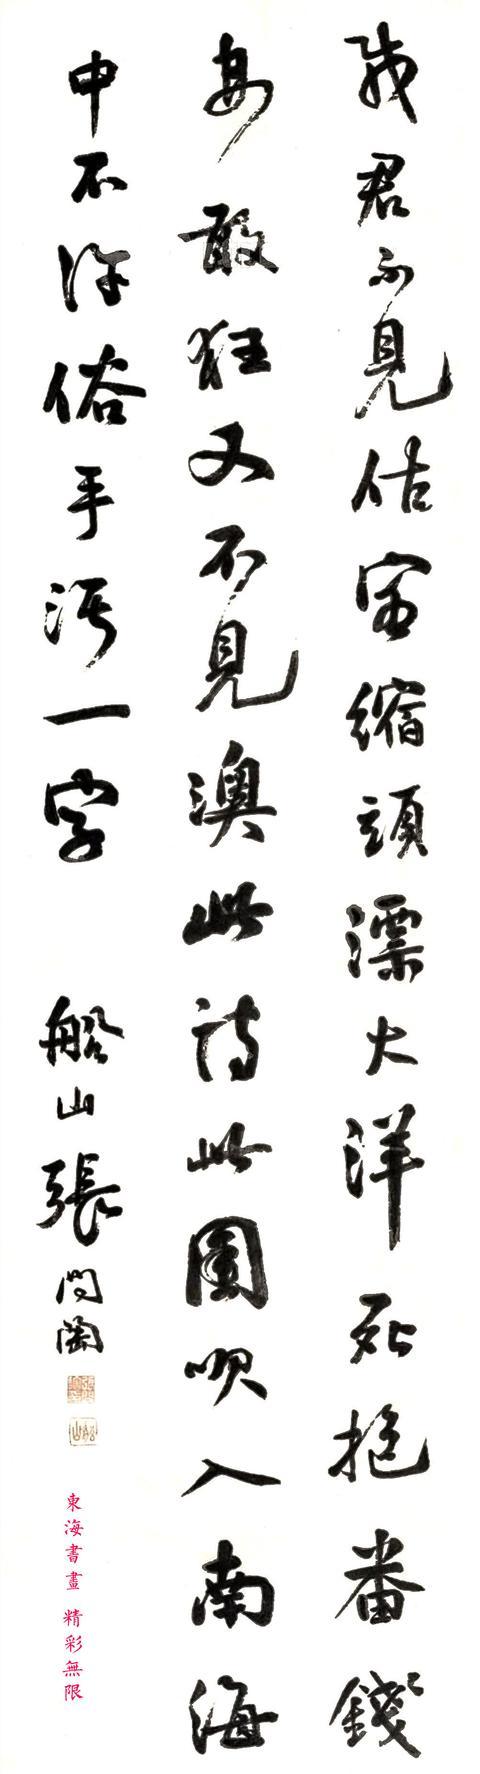 君不見估客縮頭漂大洋死抱番錢
安敢狂又不見澳此詩此圖吹入南海
申不許俗手污一字
船山張問陶
東海書畫 精彩無限